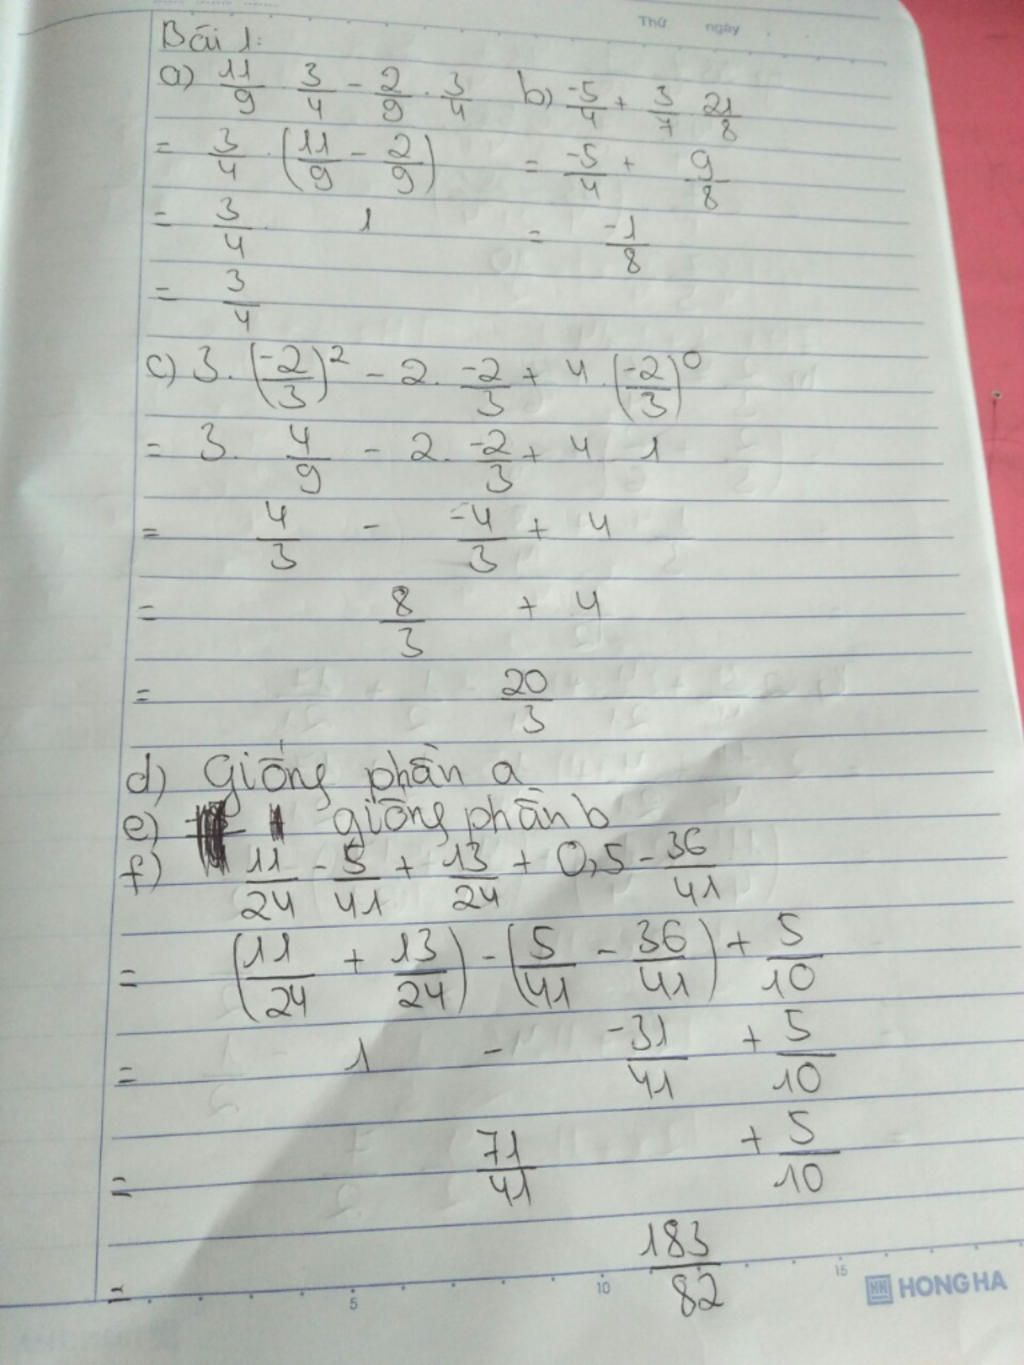 Thứ ngày
Bài 1:
a) 11/9 . 3/4 - 2/9 . 3/4 b) -5/4 + 3/7 . 21/8
= 3/4 . (11/9 - 2/9) = -5/4 + 9/8
= 3/4 . 1 = -1/8
= 3/4
c) 3. (-2/3)² - 2. -2/3 + 4. (-2/3)⁰
= 3. 4/9 - 2. -2/3 + 4 1
= 4/3 - -4/3 + 4
= 8/3 + 4
= 20/3
d) Giống phần a
e) giống phần b
f) 11/24 - 5/41 + 13/24 + 0,5 - 36/41
= (11/24 + 13/24) - (5/41 - 36/41) + 5/10
= 1 - -31/41 + 5/10
= 71/41 + 5/10
= 183/82
5 10 15 HONG HA